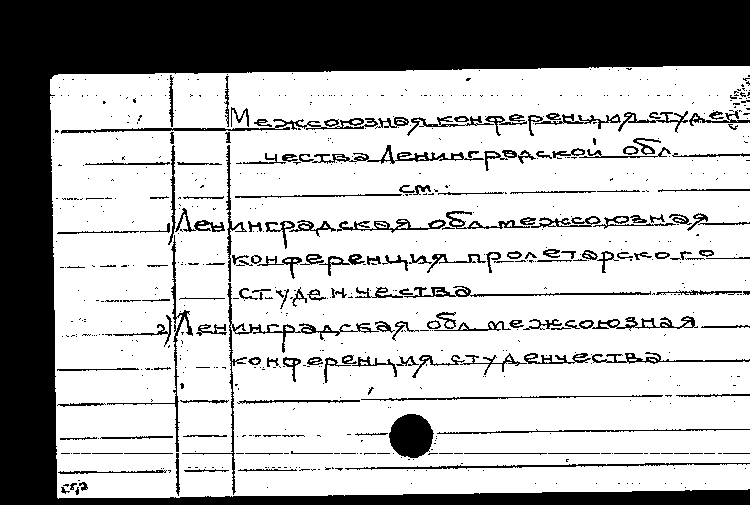 Межсоюзная конференция студен-
чества Ленинградской обл.
см.:
1) Ленинградская обл. межсоюзная
конференция пролетарского
студенчества
2) Ленинградская обл. межсоюзная
конференция студенчества